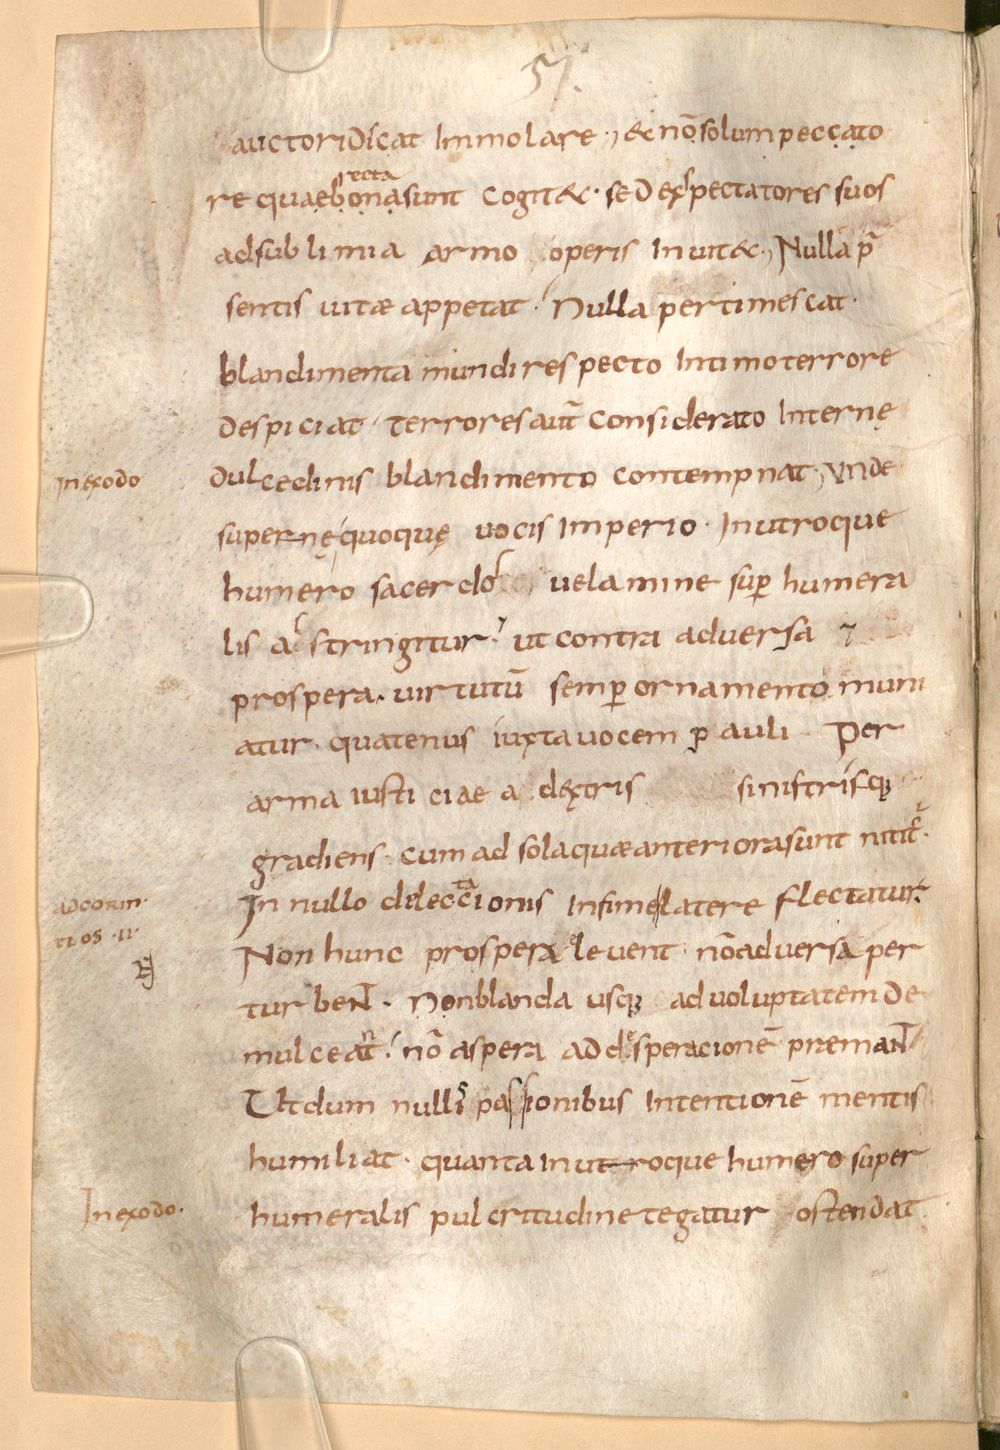 57.
auctori dicat Immolare ·, & nō solum peccato
recta
re quae bona sunt cogit& · sed exspectatores suos
ad sublimia armo operis Inuit&·, Nulla p̄
sentis uitæ appetat · Nulla pertimescat ·
blandimenta mundi respecto Intimo terrore
despiciat · terrores aūt considerato Internę
In exodo
dulcedinis blandimento contempnat ·, unde
supernę quoquę uocis Imperio · In utroque
humero sacerdos uelamine sup̄ humera
lis astringitur · ut contra aduersa ⁊
prospera · uirtutū semp̄ ornamento muni
atur · quatenus iuxta uocem pauli · Per
arma iusticiae a dextris sinistrisq;
gradiens · cum ad sola quæ anteriora sunt nitit᷑ ·
ad corin
tios · II ·
In nullo dilectionis Infime latere flectatur ·
Non hunc prospera eleuent · nō aduersa per
turbent · Non blanda usq; ad uoluptatem de
mulceant · nō aspera ad desperacionē præmant
Ut dum nullis passionibus Intentionē mentis
humiliat · quanta in utroque humero super
In exodo ·
humeralis pulcritudine tegatur ostendat